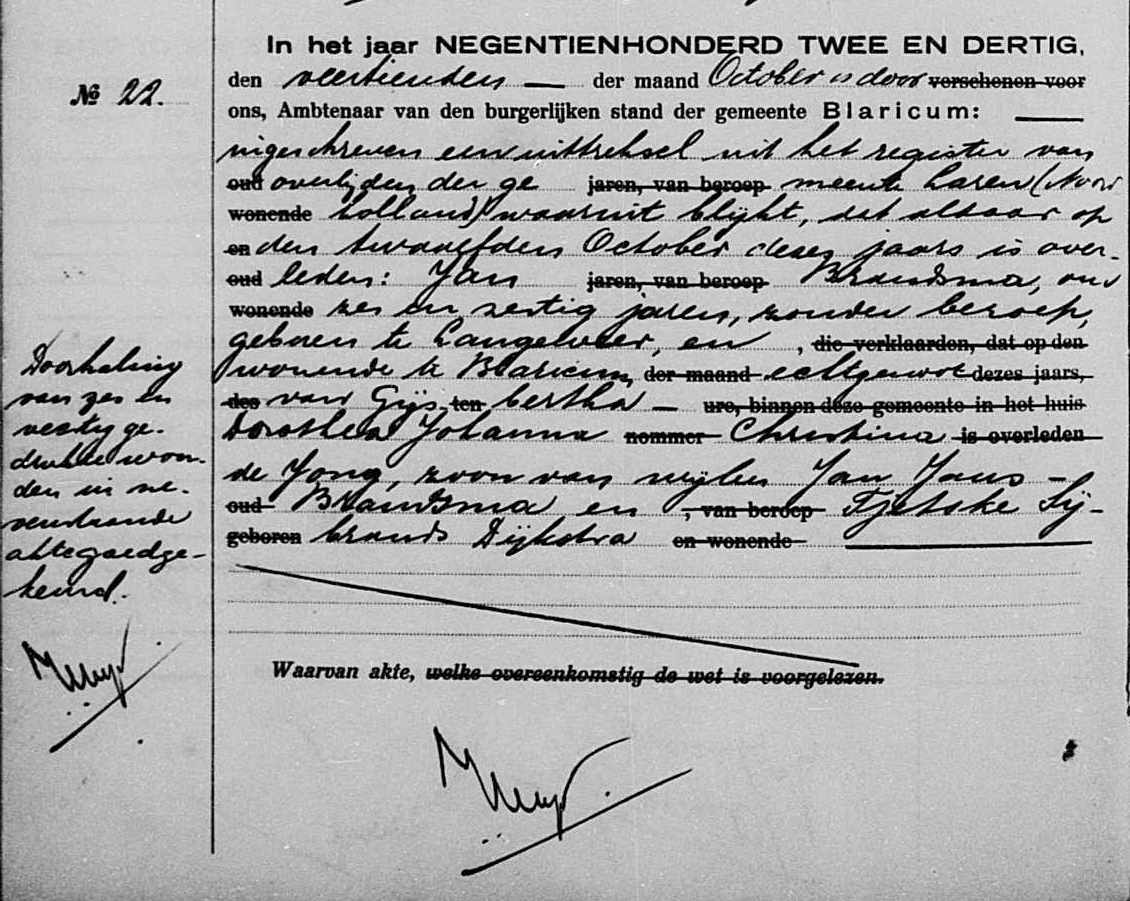 In het jaar NEGENTIENHONDERD TWEE EN DERTIG,
№ 22.
den veertienden — der maand October is door verschenen voor
ons, Ambtenaar van den burgerlijken stand der gemeente Blaricum: —
ingeschreven een uittreksel uit het register van
oud overlijden der ge jaren, van beroep meente Laren (Noord
wonende Holland) waaruit blijkt, dat aldaar op
en den twaalfden October dezes jaars is over-
oud leden: Jan jaren, van beroep Brandsma, oud
wonende zes en zestig jaren, zonder beroep,
geboren te Langeweer, en , die verklaarden, dat op den
wonende te Blaricum, der maand echtgenoot dezes jaars,
des van Gijs ten bertha — ure, binnen deze gemeente in het huis
Dorothea Johanna nommer Christina is overleden
de Jong, zoon van wijlen Jan Jans -
oud Brandsma en , van beroep Tjetske Sij-
geboren brands Dijkstra en wonende —
Waarvan akte, welke overeenkomstig de wet is voorgelezen.
Doorhaling
van zes en
veertig ge-
drukte woor-
den in ne-
venstaande
akte goedge-
keurd.